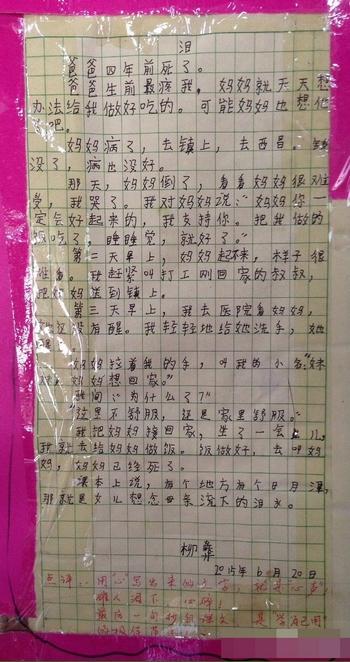 泪
爸爸四年前死了。
爸爸生前最疼我,妈妈就天天想
办法给我做好吃的。可能妈妈也想他
了吧。
妈妈病了,去镇上,去西昌。钱
没了,病也没好。
那天,妈妈倒了,看看妈妈很难
受,我哭了。我对妈妈说:“妈妈你一
定会好起来的,我支持你。把我做的
饭吃了,睡睡觉,就好了。”
第二天早上,妈妈起不来,样子很
难看。我赶紧叫打工刚回家的叔叔,
把妈妈送到镇上。
第三天早上,我去医院看妈妈,
她还没有醒。我轻轻地给她洗手,她
醒了。
妈妈拉着我的手,叫我的小名:“妹
妹,妈妈想回家。”
我问:“为什么了?”
“这里不舒服,还是家里舒服。”
我把妈妈接回家,坐了一会儿,
我就去给妈妈做饭。饭做好,去叫妈
妈,妈妈已经死了。
课本上说,有个地方有个日月潭,
那就是女儿想念母亲流下的泪水。
柳彝
2015年6月20日
点评:用“心”写出来的文字,
催人泪下
最后一句